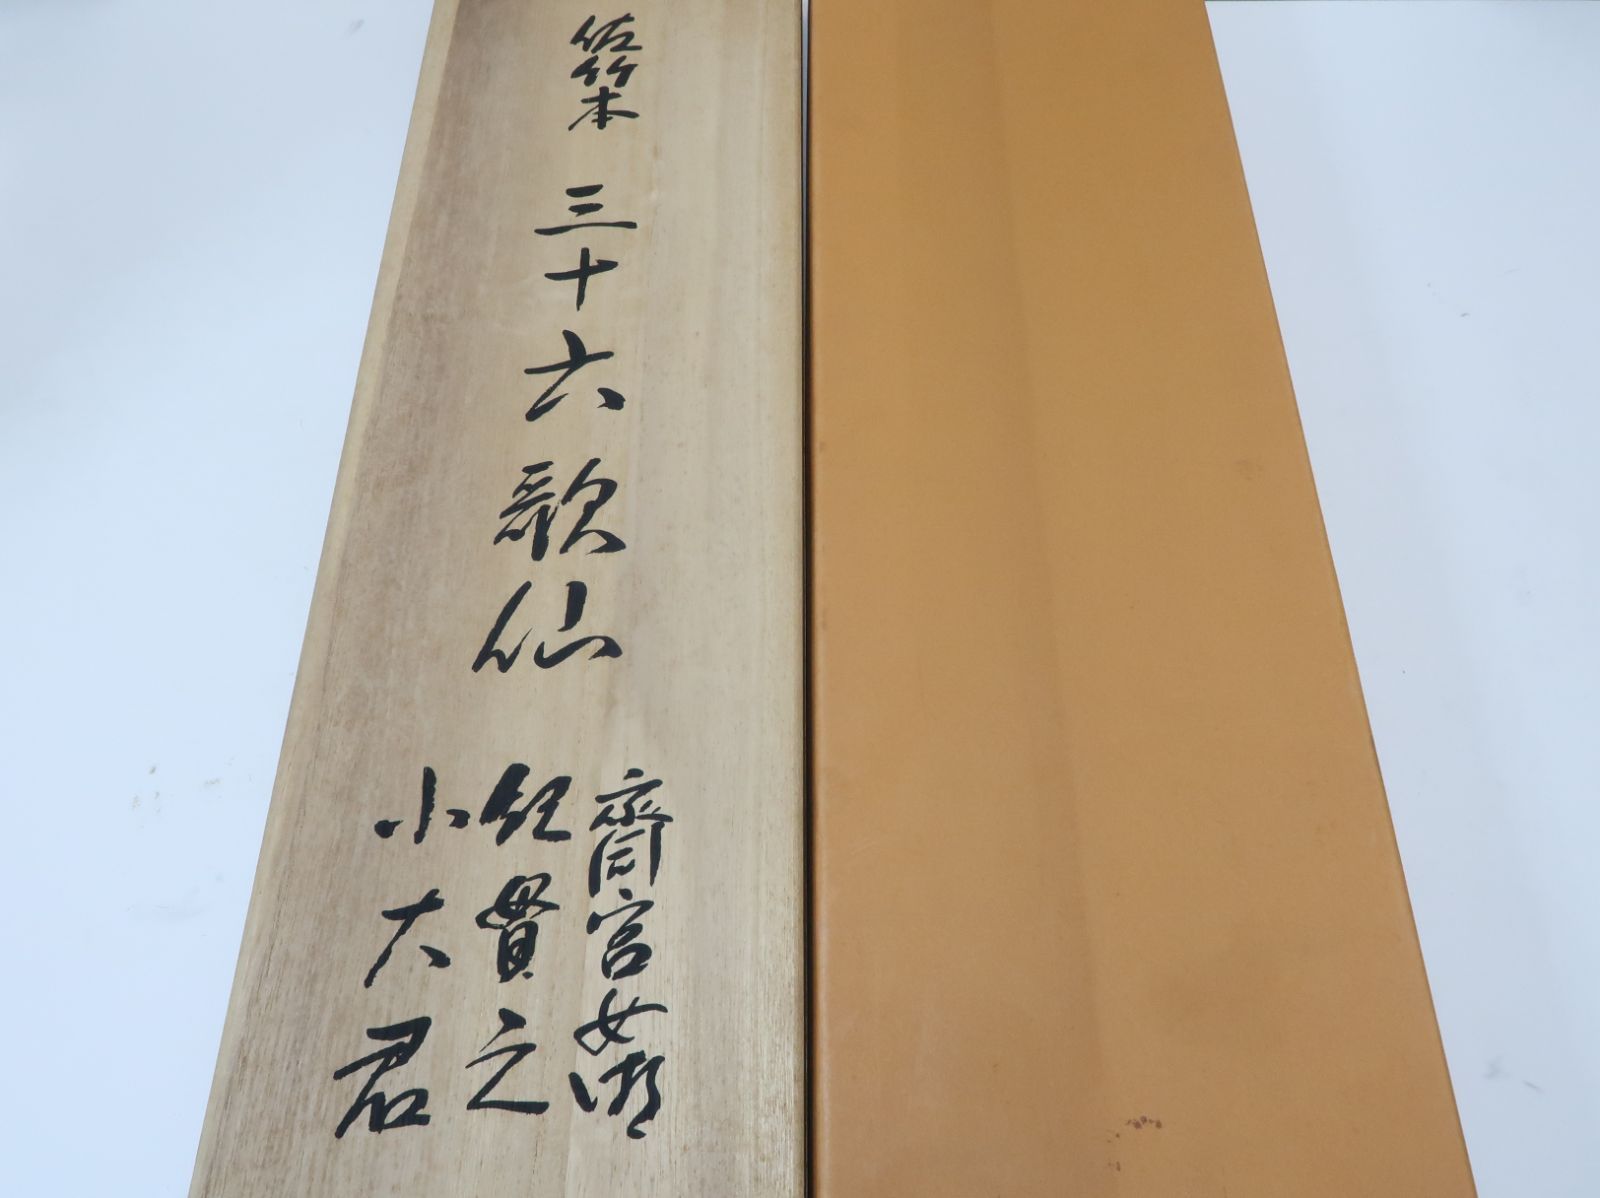 佐竹本 三十六歌仙
齋宮女御
紀貫之
小大君